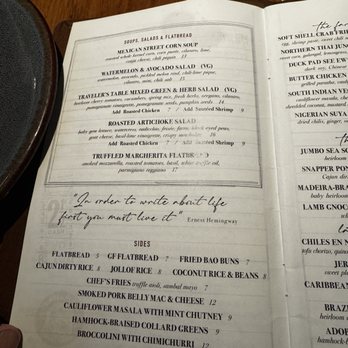 SOUPS, SALADS & FLATBREAD
MEXICAN STREET CORN SOUP
roasted whole kernel corn, corn purée, cilantro, lime,
cotija cheese, chili piquin 13
WATERMELON & AVOCADO SALAD (VG)
watermelon, avocado, pickled melon rind, chili-lime pique,
cilantro, mint, chili salt 15
TRAVELER'S TABLE MIXED GREEN & HERB SALAD (VG)
heirloom cherry tomatoes, cucumbers, spring mix, fresh herbs, oregano, cilantro,
pomegranate vinaigrette, pomegranate seeds, pumpkin seeds 14
Add Roasted Chicken 7 / Add Sautéed Shrimp 9
ROASTED ARTICHOKE SALAD
baby gem lettuce, watercress, radicchio, frisée, farro, black eyed peas,
goat cheese, basil-lime vinaigrette, crispy artichoke 16
Add Roasted Chicken 7 / Add Sautéed Shrimp 9
TRUFFLED MARGHERITA FLATBREAD
smoked mozzarella, roasted tomatoes, basil, white truffle oil,
parmigiano reggiano 17
"In order to write about life
first you must live it" Ernest Hemingway
SIDES
FLATBREAD 5 GF FLATBREAD 7 FRIED BAO BUNS 7
CAJUN DIRTY RICE 8 JOLLOF RICE 8 COCONUT RICE & BEANS 8
CHEF'S FRIES truffle aioli, sambal mayo 7
SMOKED PORK BELLY MAC & CHEESE 12
CAULIFLOWER MASALA WITH MINT CHUTNEY 9
HAMHOCK-BRAISED COLLARD GREENS 9
BROCCOLINI WITH CHIMICHURRI 12
SOFT SHELL CRAB FRI
egg, shrimp paste, sweet chili
NORTHERN THAI JUNG
DUCK PAD SEE EW
BUTTER CHICKEN
grilled paratha,
SOUTH INDIAN VE
cauliflower masala,
NIGERIAN SUYA
dried chilis, ginger,
JUMBO SEA SC
heirloom
SNAPPER PON
Cajun dir
MADEIRA-BRA
heirloom
LAMB GNOCC
CHILES EN N
JER
sweet p
CARIBBEAN
BRAZ
heirloom
ADOB
hamhock-br